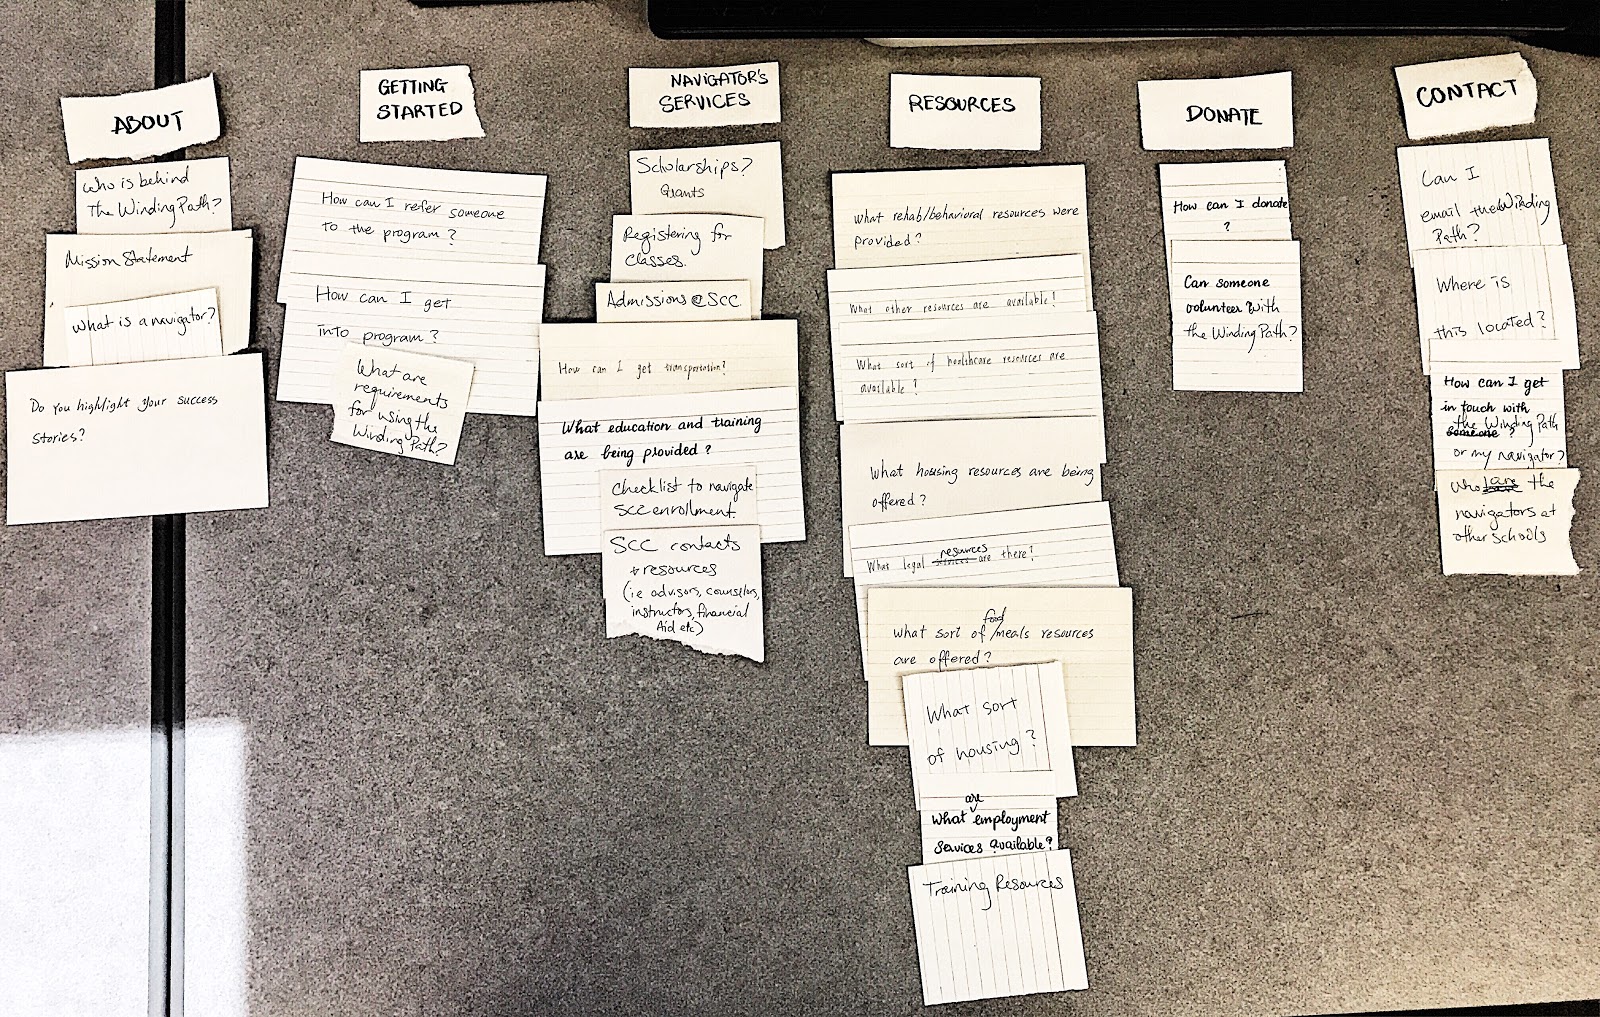 ABOUT
Who is behind
The Winding Path?
Mission Statement
What is a navigator?
Do you highlight your success
stories?
GETTING
STARTED
How can I refer someone
to the program?
How can I get
into program?
What are
requirements
for using the
Winding Path?
NAVIGATOR'S
SERVICES
Scholarships?
Grants
Registering for
classes.
Admissions @ SCC
How can I get transportation?
What education and training
are being provided?
Checklist to navigate
SCC enrollment.
SCC contacts
+ resources
(ie advisors, counselors,
instructors, financial
Aid etc)
RESOURCES
What rehab/behavioral resources were
provided?
What other resources are available!
What sort of healthcare resources are
available?
What housing resources are being
offered?
resources
What legal services are there?
food
What sort of /meals resources
are offered?
What sort
of housing?
are
What employment
services available?
Training Resources
DONATE
How can I donate
?
Can someone
volunteer with
the Winding Path?
CONTACT
Can I
email the Winding
Path?
Where is
this located?
How can I get
in touch with
the Winding Path
someone?
or my navigator?
Who are the
navigators at
other schools